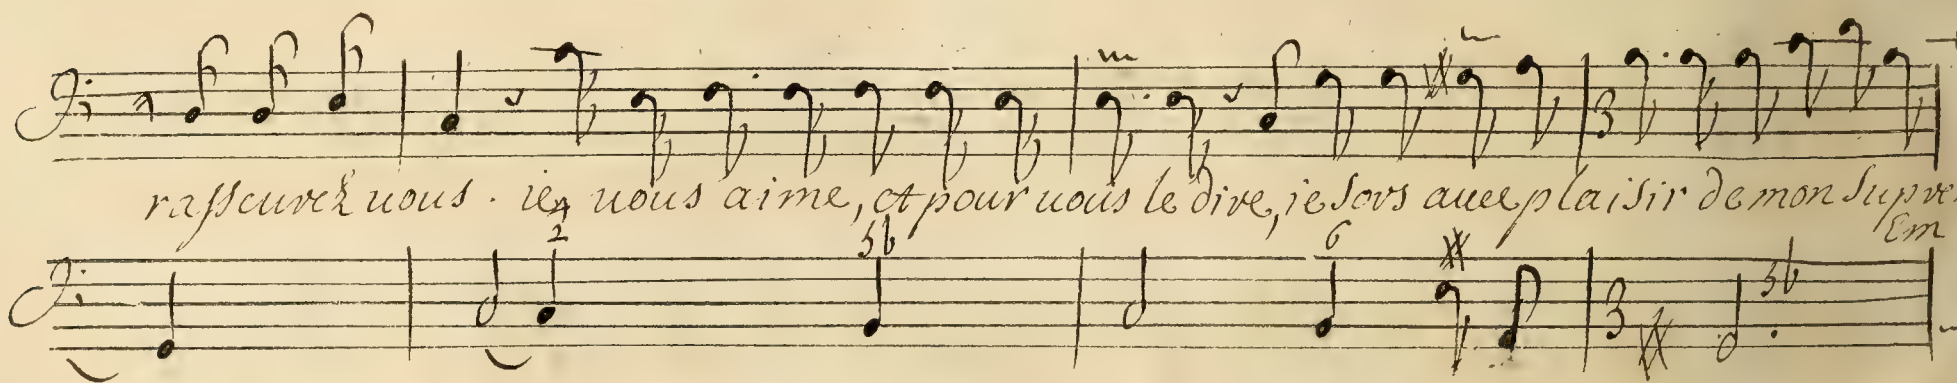 rasseurez uous . ie uous aime, et pour uous le dire, ie sors auec plaisir de mon Supre
Em
4
2
5b
6
5b
3
3